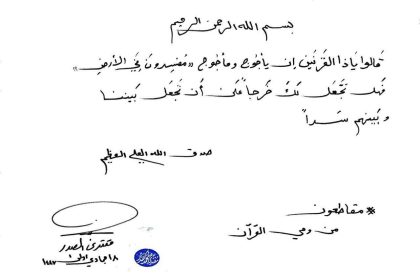 بسم الله الرحمن الرحيم
قالوا ياذا القرنين إن يأجوج ومأجوج «مفسدون في الأرض»
فهل نجعل لك خرجاً على أن تجعل بيننا
وبينهم سداً
صدق الله العلي العظيم
* مقاطعون
من وحي القرآن
مقتدى الصدر